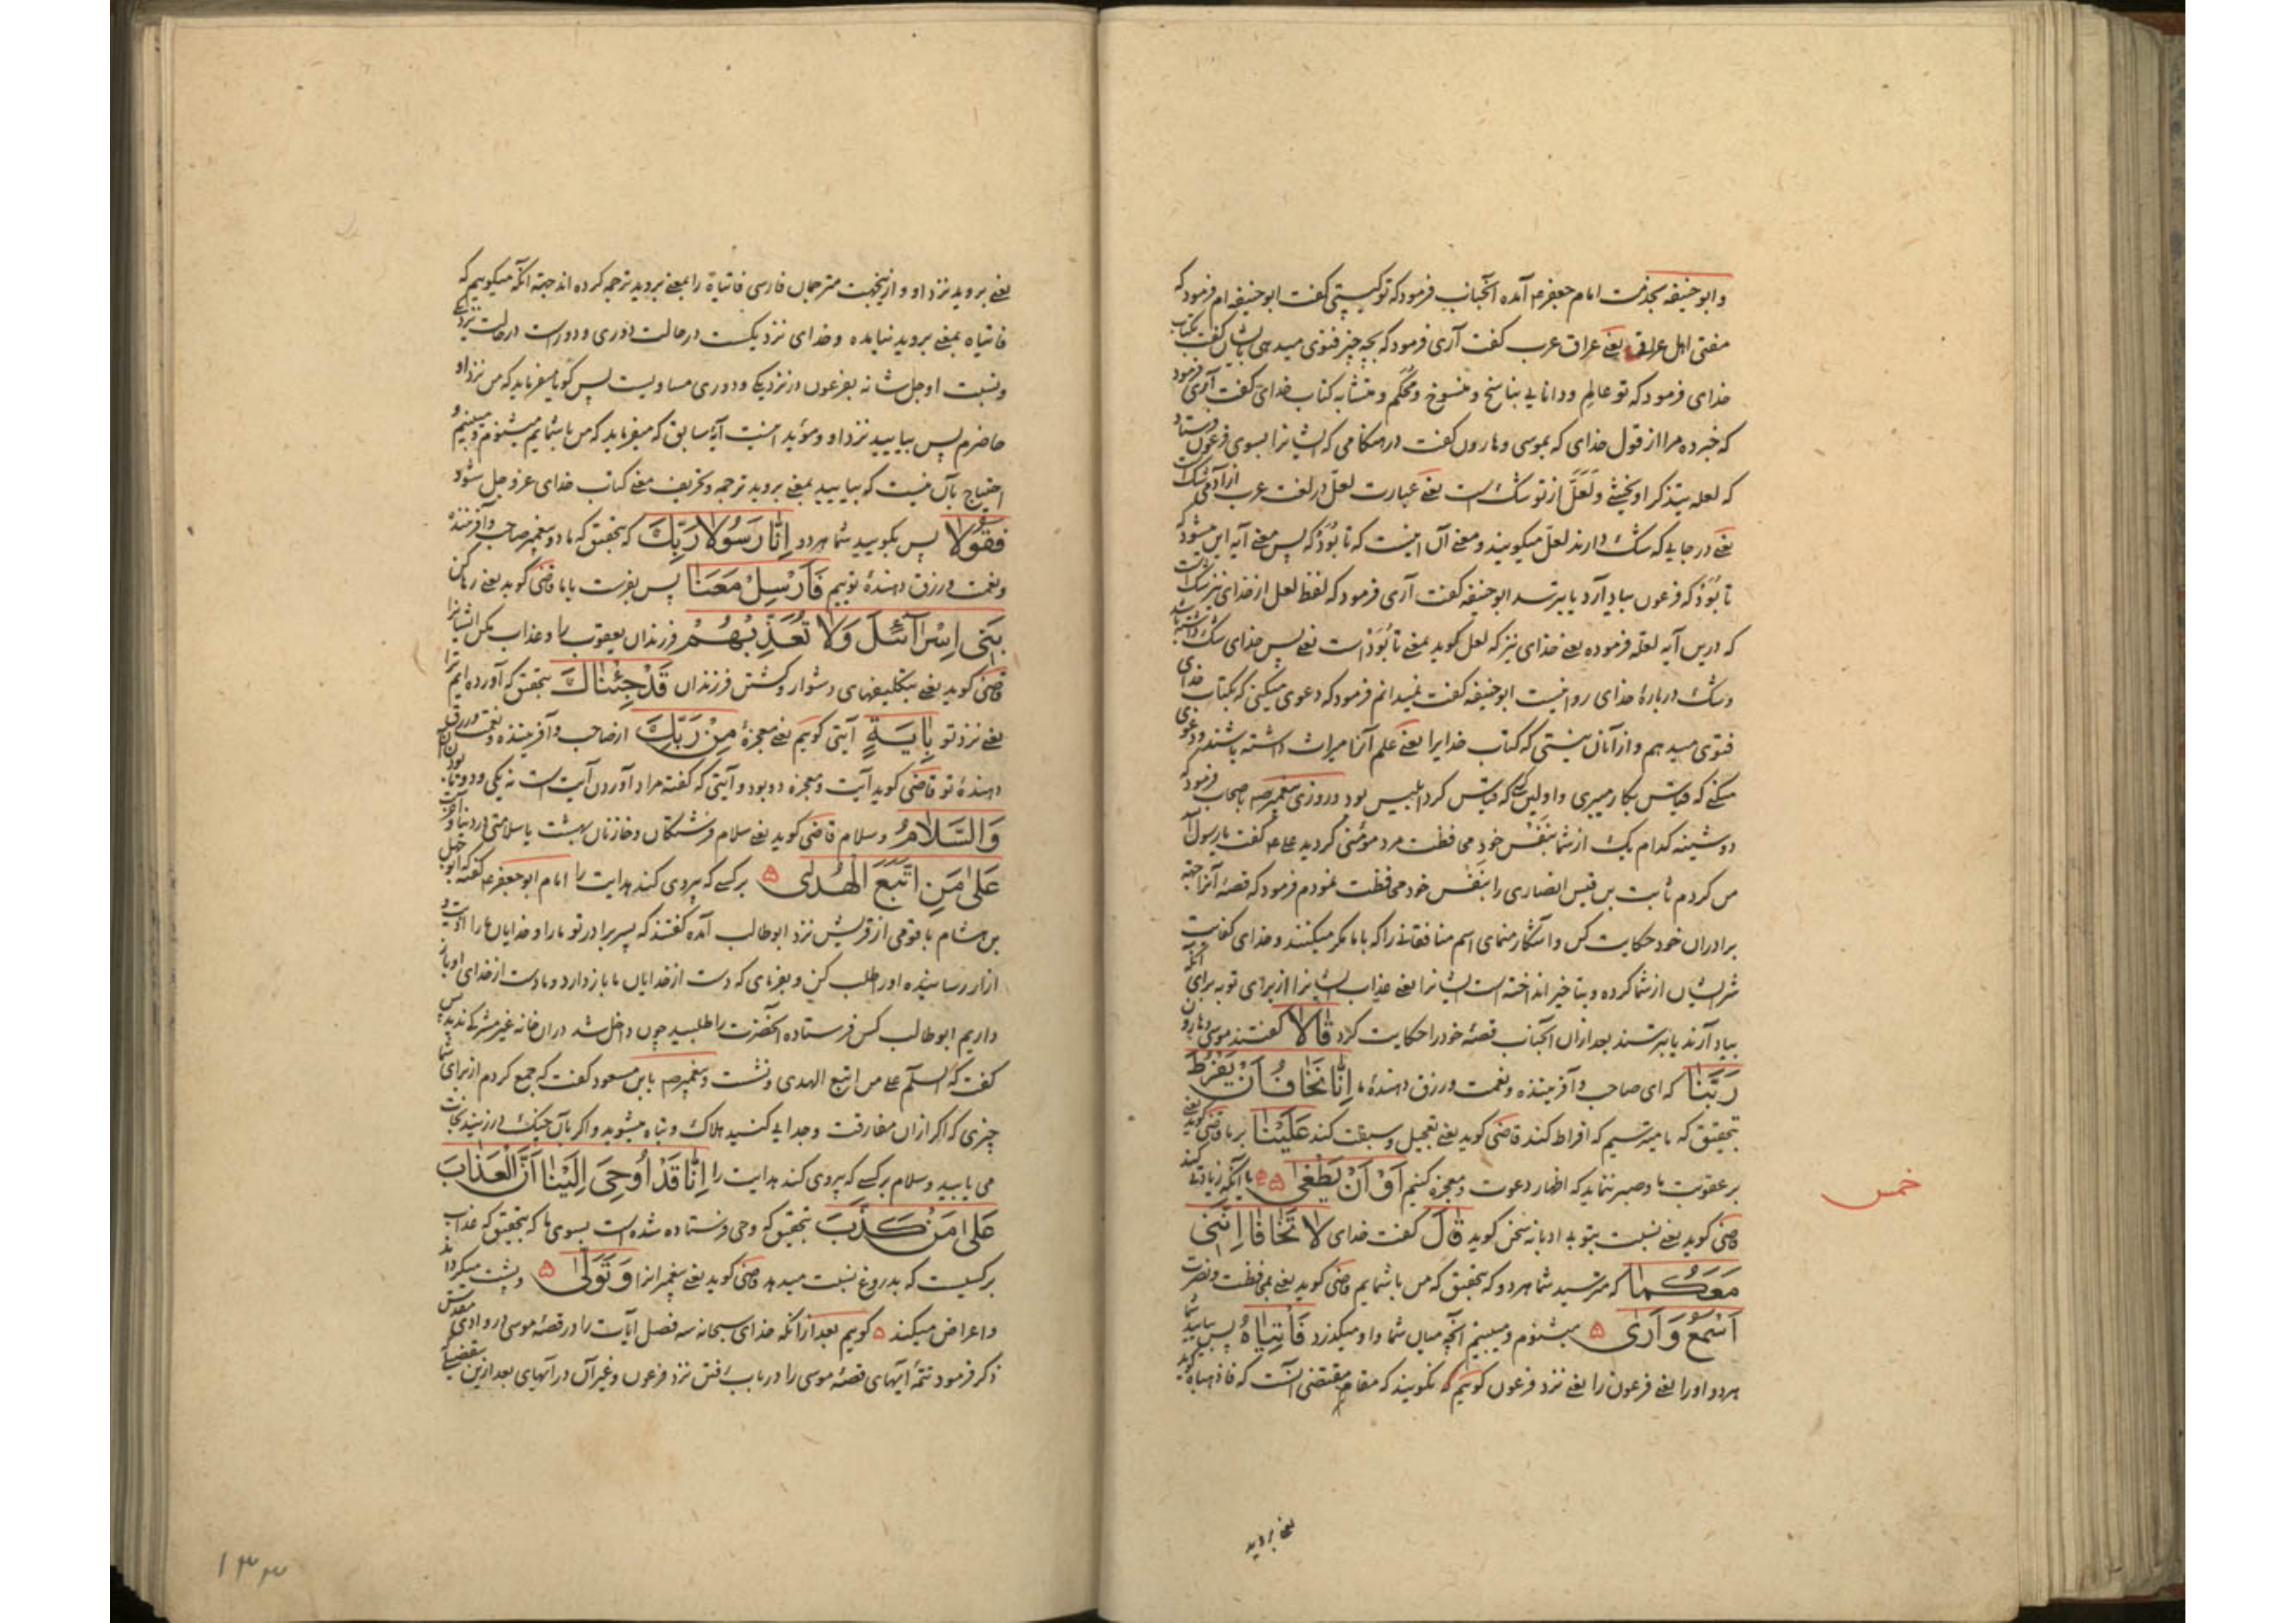 و ابو حنیفه بخدمت امام جعفر ع آمده آنجناب فرمود که تو کیستی گفت ابو حنیفه ام فرمود که
مفتی اهل عراقی یعنی عراق عرب گفت آری فرمود که بچه چیز فتوی میدهی بایشان گفت بکتاب
خدای فرمود که تو عالم و دانایی بناسخ و منسوخ و محکم و متشابه کتاب خدای گفت آری فرمود
که خبر ده مرا از قول خدای که بموسی و هارون گفت در هنگامی که ایشانرا بسوی فرعون فرستاد
که لعله یتذکر او یخشی و لعل از تو شک است یعنی عبارت لعل در لغت عرب از آدمی شک است
یعنی در جایی که شک دارند لعل میگویند و معنی آن اینست که تا بود که پس معنی آیه این میشود که
تا بود که فرعون بیاد آرد یا بترسد ابو حنیفه گفت آری فرمود که لفظ لعل از خدای نیز شک است
که درین آیه لعله فرموده یعنی خدای نیز که لعل گوید بمعنی تا بود است یعنی پس خدای شک داشته باشد
و شک درباره خدای روا نیست ابو حنیفه گفت نمیدانم فرمود که دعوی میکنی که بکتاب خدای
فتوی میدهم و از آنان نیستی که کتاب خدایرا یعنی علم آنرا میراث داشته باشند و دعوی
میکنی که قیاس بکار میبری و اولین کسی که قیاس کرد ابلیس بود و روزی پیغمبر صه باصحاب فرمود که
دوشینه کدام یک از شما بنفس خود محافظت مرد مؤمنی کردید علی ع گفت یا رسول الله
من کردم ثابت بن قیس انصاری را بنفس خود محافظت نمودم فرمود که قصه آنرا جهة
برادران خود حکایت کن و آشکار منمای اسم منافقانی را که با ما مکر میکنند و خدای کفایت
شر ایشان از شما کرده و بتأخیر انداخته است ایشانرا یعنی عذاب ایشانرا از برای توبه برای آنکه
بیاد آرند یا بترسند بعد ازان آنجناب قصه خود را حکایت کرد قَالَا گفتند موسی و هارون
رَبَّنَا که ای صاحب و آفریننده و نعمت و رزق دهنده ما اِنَّنَا نَخَافُ اَنْ یَفْرُطَ
بتحقیق که ما میترسیم که افراط کند قاضی گوید یعنی تعجیل و سبقت کند عَلَیْنَا بر ما قاضی گوید یعنی
بر عقوبت ما و صبر ننماید که اظهار دعوت و معجزه کنیم اَوْ اَنْ یَطْغٰی یا آنکه زیادتی کند
قاضی گوید یعنی نسبت بتو بی ادبانه سخن گوید قَالَ گفت خدای لَا تَخَافَا اِنَّنِی
مَعَکُمَا که مترسید شما هر دو که بتحقیق که من با شمایم قاضی گوید یعنی بمحافظت و نصرت
اَسْمَعُ وَ اَرٰی میشنوم و میبینم آنچه میان شما و او میگذرد فَأْتِیَاهُ پس بیایید شما
هر دو او را یعنی فرعون را یعنی نزد فرعون گوییم که نگویند که مقام مقتضی آنست که فاذهبا گوید
خمس
یعنی بروید
یعنی بروید نزد او و ازینجهت مترجمان فارسی فاتیاه را بمعنی بروید ترجمه کرده اند جهة آنکه میگوییم که
فاتیاه بمعنی بروید نیامده و خدای نزدیکست در حالت دوری و دورست در حالت نزدیکی
و نسبت او جل شانه بفرعون در نزدیکی و دوری مساویست پس گویا میفرماید که من نزد او
حاضرم پس بیایید نزد او و مؤید اینست آیه سابق که میفرماید که من با شمایم میشنوم و میبینم و
احتیاج بآن نیست که بیایید بمعنی بروید ترجمه و تحریف معنی کتاب خدای عز و جل شود
فَقُولَا پس بگویید شما هر دو اِنَّا رَسُولَا رَبِّکَ که بتحقیق که ما دو پیغمبر صاحب و آفریننده
و نعمت و رزق دهنده توییم فَاَرْسِلْ مَعَنَا پس بفرست با ما قاضی گوید یعنی رها کن
بَنِی اِسْرَآئِیلَ وَلَا تُعَذِّبْهُمْ فرزندان یعقوب را و عذاب مکن ایشانرا
قاضی گوید یعنی بتکلیفهای دشوار و کشتن فرزندان قَدْ جِئْنَاکَ بتحقیق که آورده ایم ترا
یعنی نزد تو بِاٰیَةٍ آیتی گوییم یعنی معجزه مِنْ رَبِّکَ از صاحب و آفریننده و نعمت و رزق
دهنده تو قاضی گوید آیت و معجزه دو بود و آیتی که گفته مراد آوردن آیت است نه یکی و دو تا بودن آن
وَالسَّلَامُ و سلام قاضی گوید یعنی سلام فرشتگان و خازنان بهشت یا سلامتی در دنیا و آخرت
عَلٰی مَنِ اتَّبَعَ الْهُدٰی بر کسی که پیروی کند هدایت را امام ابو جعفر ع گفته ابو جهل
بن هشام با قومی از قریش نزد ابو طالب آمده گفتند که پسر برادر تو ما را و خدایان ما را اذیت و
آزار رسانیده او را طلب کن و بفرمای که دست از خدایان ما باز دارد و ما دست از خدای او باز
داریم ابو طالب کس فرستاده آنحضرت را طلبید چون داخل شد دران خانه غیر مشرک ندید پس
گفت که السلام علی من اتبع الهدی و نشست و پیغمبر صه بابن مسعود گفت که جمع کردم از برای شما
چیزی که اگر ازان مفارقت و جدایی کنید هلاک و تباه میشوید و اگر بآن چنگ در زنید نجات
می یابید و سلام بر کسی که پیروی کند هدایت را اِنَّا قَدْ اُوحِیَ اِلَیْنَا اَنَّ الْعَذَابَ
عَلٰی مَنْ کَذَّبَ بتحقیق که وحی فرستاده شده است بسوی ما که بتحقیق که عذاب
بر کسیست که بدروغ نسبت میدهد قاضی گوید یعنی پیغمبرانرا وَ تَوَلّٰی و پشت میگرداند
و اعراض میکند گوییم بعد ازانکه خدای سبحانه سه فصل آیات را در قصه موسی در وادی مقدس
ذکر فرمود تتمه آیهای قصه موسی را در باب رفتن نزد فرعون و غیر آن در آیهای بعد ازین
۱۳۳